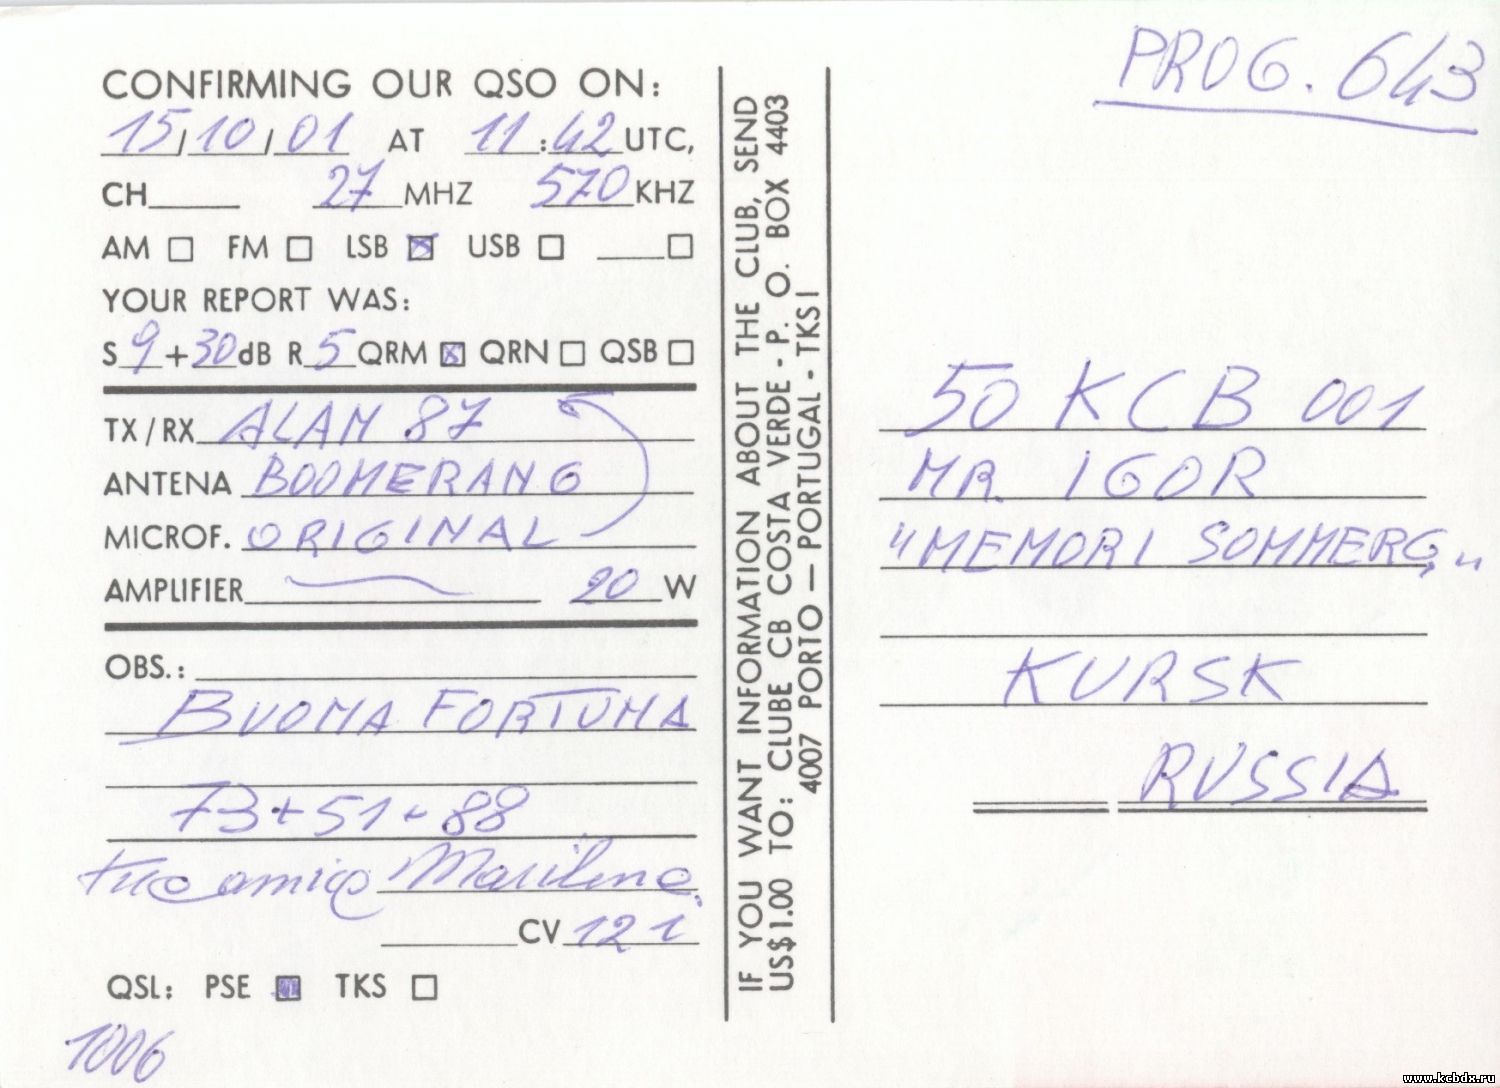 PROG. 643
CONFIRMING OUR QSO ON:
15/10/01 AT 11:42 UTC,
CH____ 27 MHZ 570 KHZ
AM □ FM □ LSB ☒ USB □ ____□
YOUR REPORT WAS:
S 9 + 30 dB R 5 QRM ☒ QRN □ QSB □
TX/RX ALAN 87
ANTENA BOOMERANG
MICROF. ORIGINAL
AMPLIFIER 20 W
OBS.:
BUONA FORTUNA
73 + 51 - 88
tuo amico
CV 121
QSL: PSE ☒ TKS □
1006
IF YOU WANT INFORMATION ABOUT THE CLUB, SEND
US$1.00 TO: CLUBE CB COSTA VERDE - P. O. BOX 4403
4007 PORTO — PORTUGAL - TKS!
50 KCB 001
MR. IGOR
"MEMORI SOMMERG,"
KURSK
RUSSIA
www.kcbdx.ru